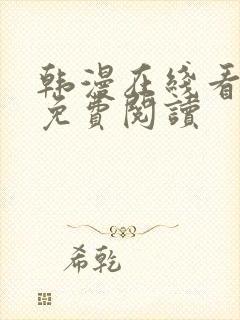 韩漫在线看
免費閱讀
希乾